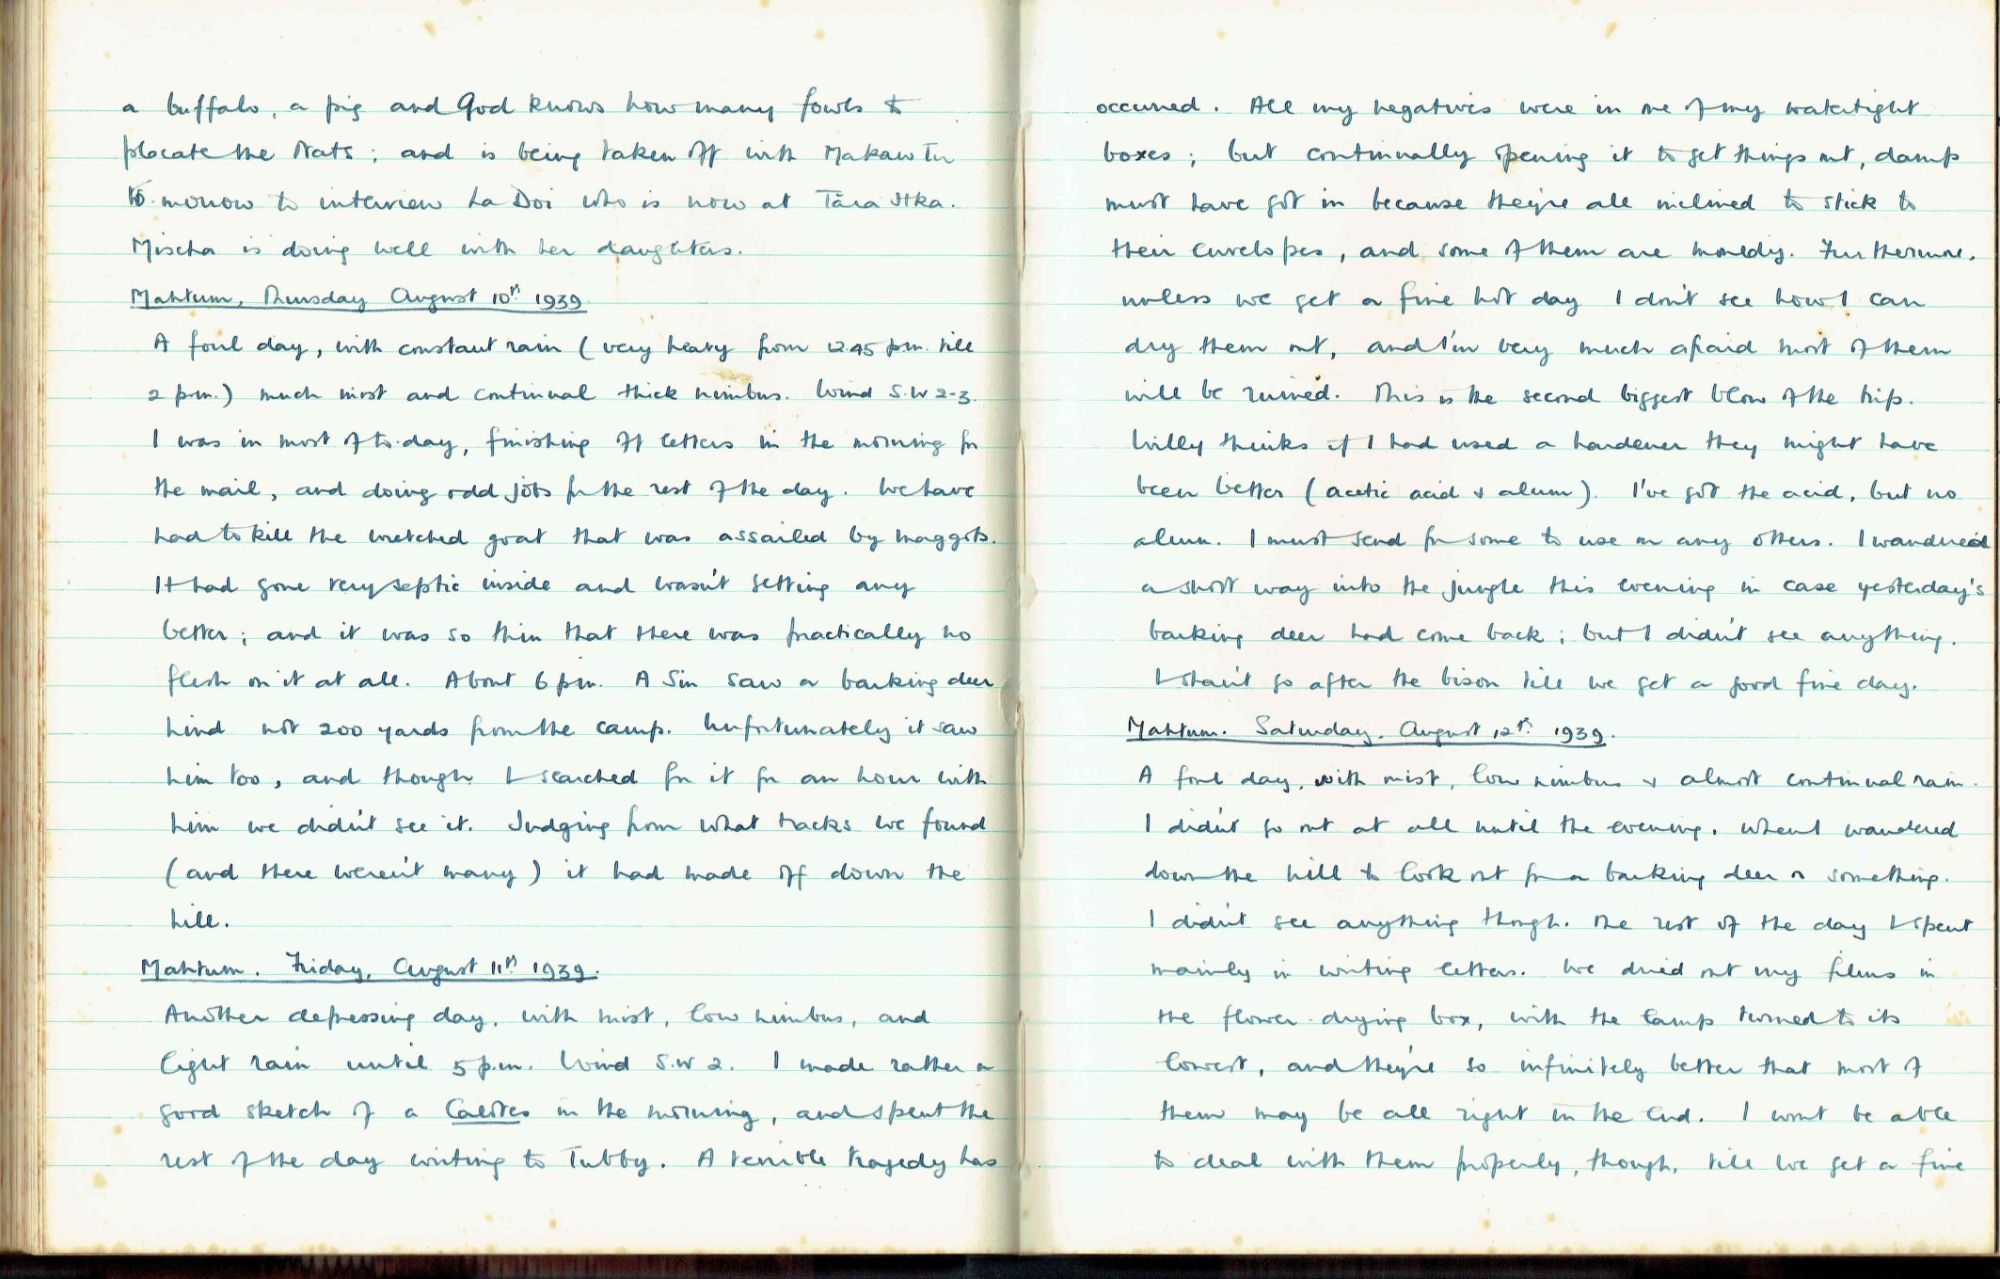 a buffalo, a pig and God knows how many fowls to
placate the Nats; and is being taken off with Makaw Tu
to-morrow to interview La Doi who is now at Tāra Htka.
Mischa is doing well with her daughters.
Mahtum, Thursday August 10th 1939.
A foul day, with constant rain (very heavy from 12.45 p.m. till
2 p.m.) much mist and continual thick nimbus. Wind S.W 2-3.
I was in most of to-day, finishing off letters in the morning for
the mail, and doing odd jobs for the rest of the day. We have
had to kill the wretched goat that was assailed by maggots.
It had gone very septic inside and wasn't getting any
better; and it was so thin that there was practically no
flesh on it at all. About 6 p.m. A Sin saw a barking deer
hind not 200 yards from the camp. Unfortunately it saw
him too, and though I searched for it for an hour with
him we didn't see it. Judging from what tracks we found
(and there weren't many) it had made off down the
hill.
Mahtum. Friday, August 11th 1939.
Another depressing day, with mist, low nimbus, and
light rain until 5 p.m. Wind S.W 2. I made rather a
good sketch of a Calotes in the morning, and spent the
rest of the day writing to Tubby. A terrible tragedy has
occurred. All my negatives were in one of my watertight
boxes; but continually opening it to get things out, damp
must have got in because they're all inclined to stick to
their envelopes, and some of them are mouldy. Furthermore,
unless we get a fine hot day I don't see how I can
dry them out, and I'm very much afraid most of them
will be ruined. This is the second biggest blow of the trip.
Willy thinks if I had used a hardener they might have
been better (acetic acid & alum). I've got the acid, but no
alum. I must send for some to use on any others. I wandered
a short way into the jungle this evening in case yesterday's
barking deer had come back; but I didn't see anything.
I shan't go after the bison till we get a good fine day.
Mahtum. Saturday. August 12th 1939.
A foul day, with mist, low nimbus & almost continual rain.
I didn't go out at all until the evening, when I wandered
down the hill to look out for a barking deer or something.
I didn't see anything though. The rest of the day I spent
mainly in writing letters. We dried out my films in
the flower-drying box, with the lamp turned to its
lowest, and they're so infinitely better that most of
them may be all right in the end. I won't be able
to deal with them properly, though, till we get a fine